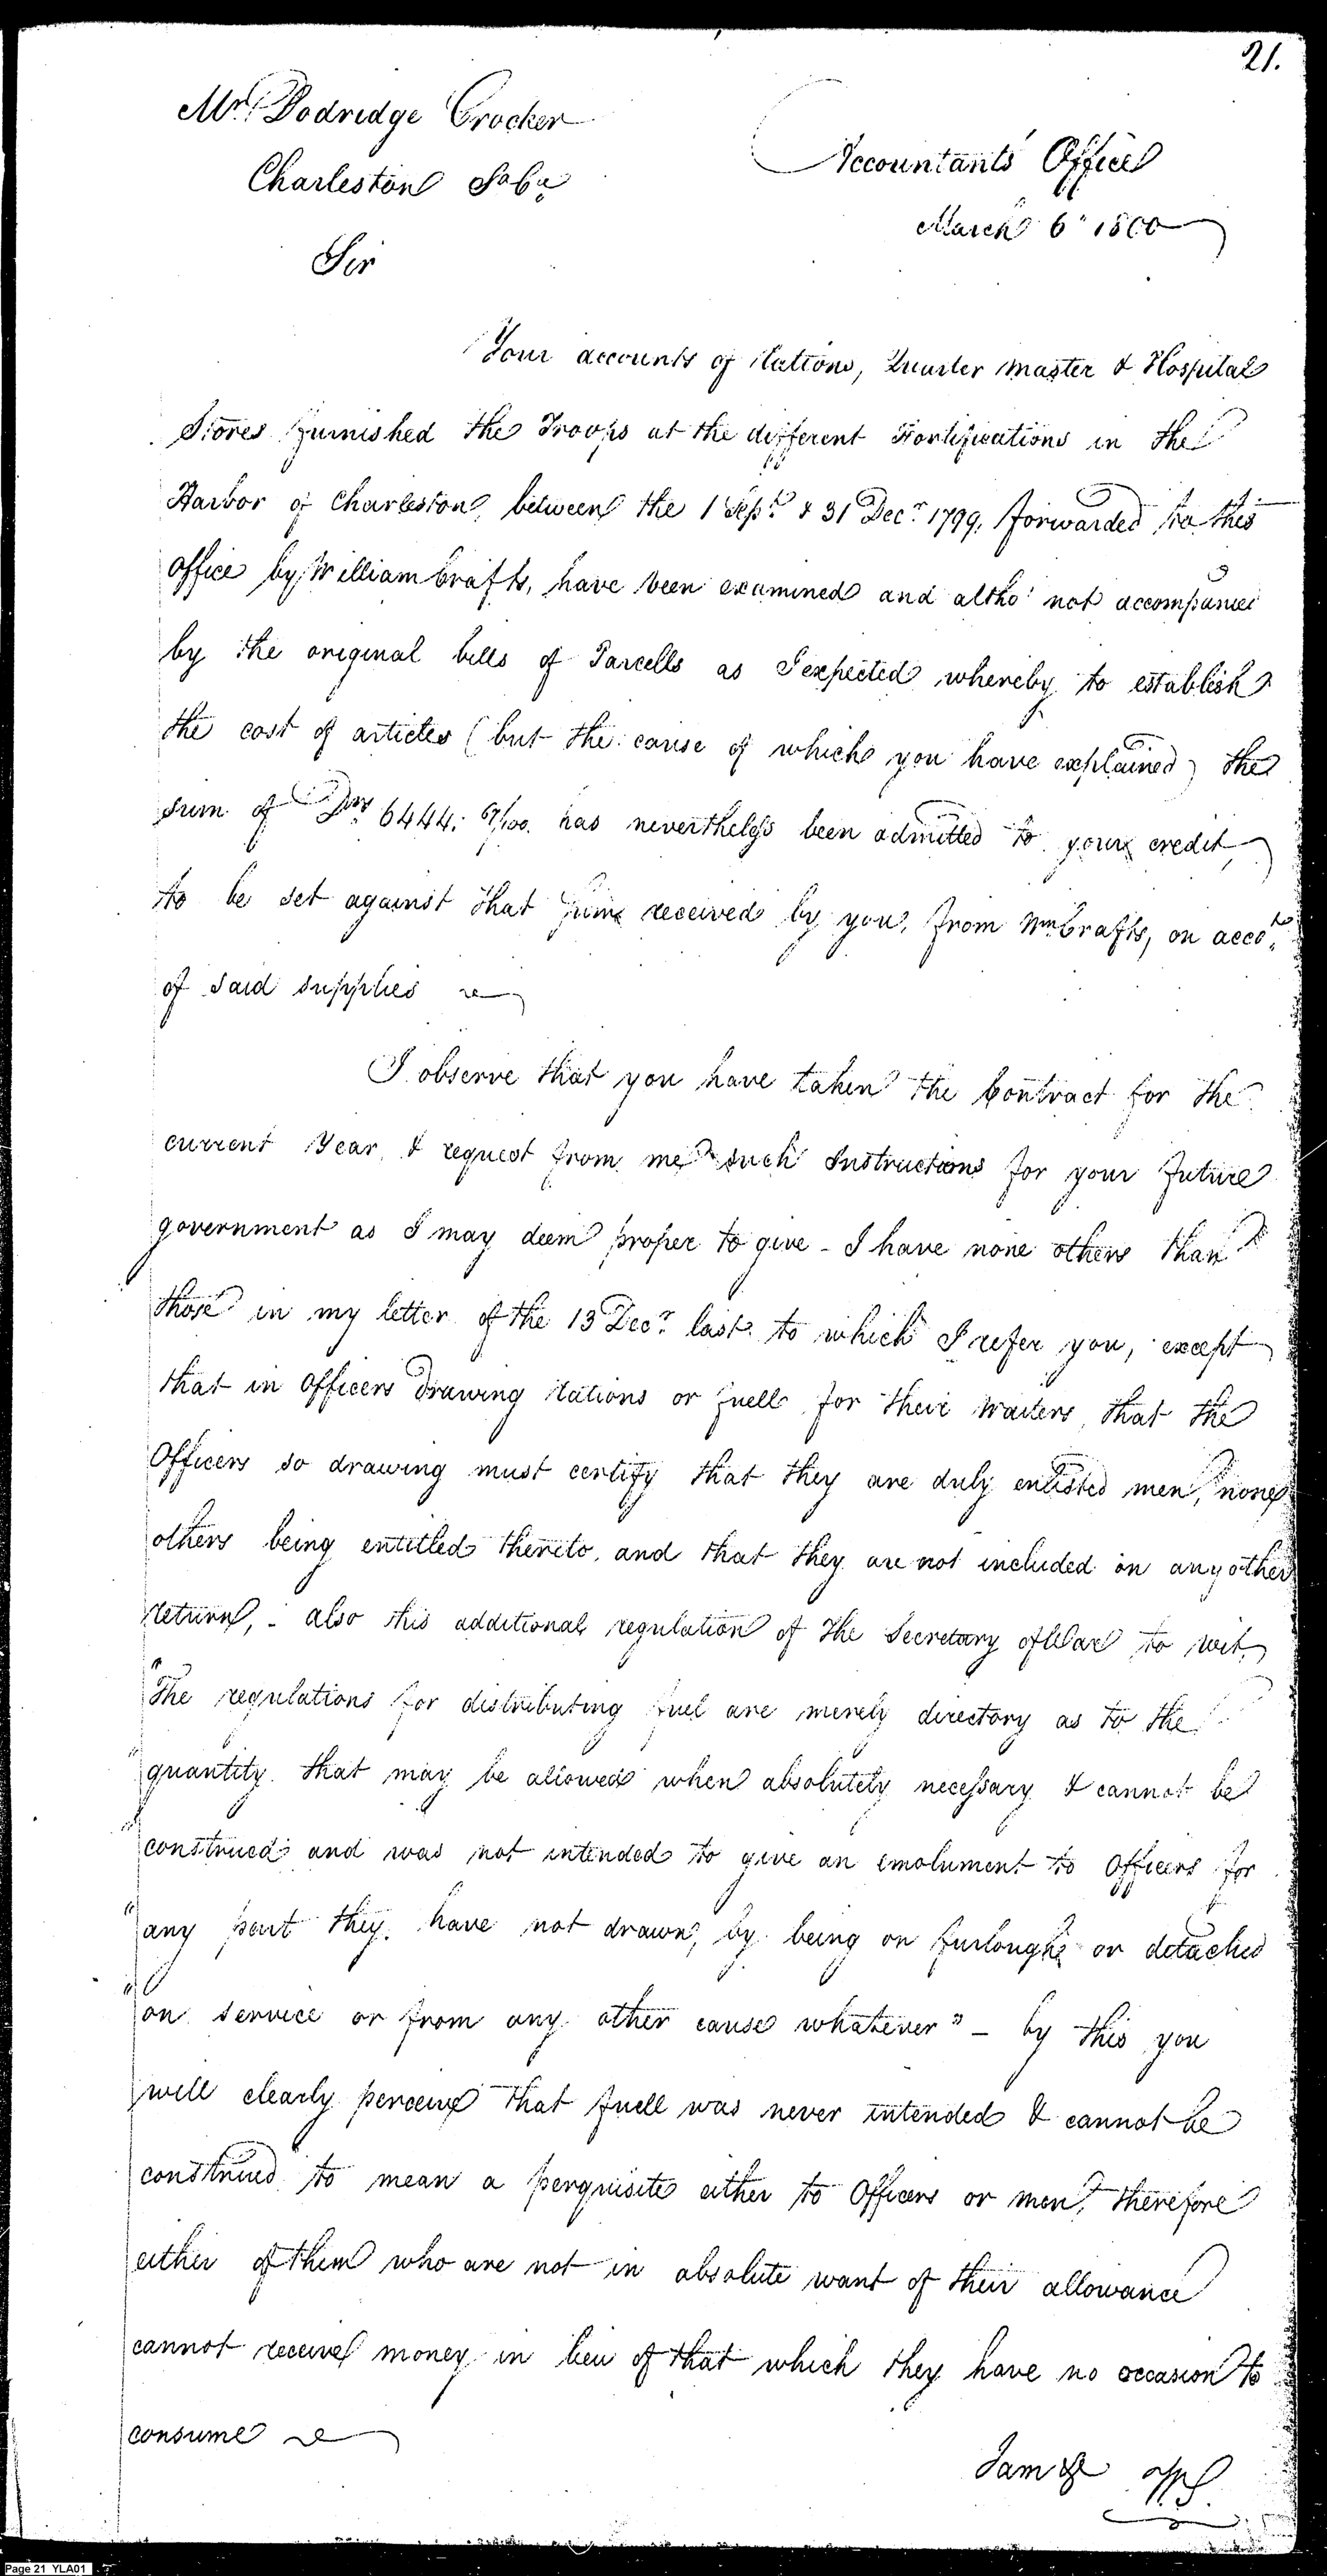 21.
Mr. Dodridge Crocker
Charleston So Ca
Accountants Office
March 6 1800
Sir
Your accounts of Rations, Quarter Master & Hospital
Stores furnished the Troops at the different Fortifications in the
Harbor of Charleston, between the 1 Sept. & 31 Decr. 1799, forwarded to this
office by William Crafts, have been examined and altho' not accompanied
by the original bills of Parcells as I expected whereby to establish
the cost of articles (but the cause of which you have explained) the
sum of Drs. 6444: /100. has nevertheless been admitted to your credit,
to be set against that sum received by you, from Wm Crafts, on acco.t
of said supplies
I observe that you have taken the Contract for the
current Year, & request from me such Instructions for your future
government as I may deem proper to give - I have none others than
those in my letter of the 13 Decr. last to which I refer you, except
that in Officers drawing rations or fuell for their Waiters, that the
Officers so drawing must certify that they are duly enlisted men, none
others being entitled thereto, and that they are not included in any other
return, - also this additional regulation of the Secretary of War to wit,
"The regulations for distributing fuel are merely directory as to the
"quantity that may be allowed when absolutely necessary & cannot be
"construed and was not intended to give an emolument to Officers for
"any part they have not drawn, by being on furloughs or detached
"on service or from any other cause whatever" - by this you
will clearly perceive that fuell was never intended & cannot be
construed to mean a perquisite either to Officers or men, therefore
either of them who are not in absolute want of their allowance
cannot receive money in lieu of that which they have no occasion to
consume
I am &c
Page 21 YLA01